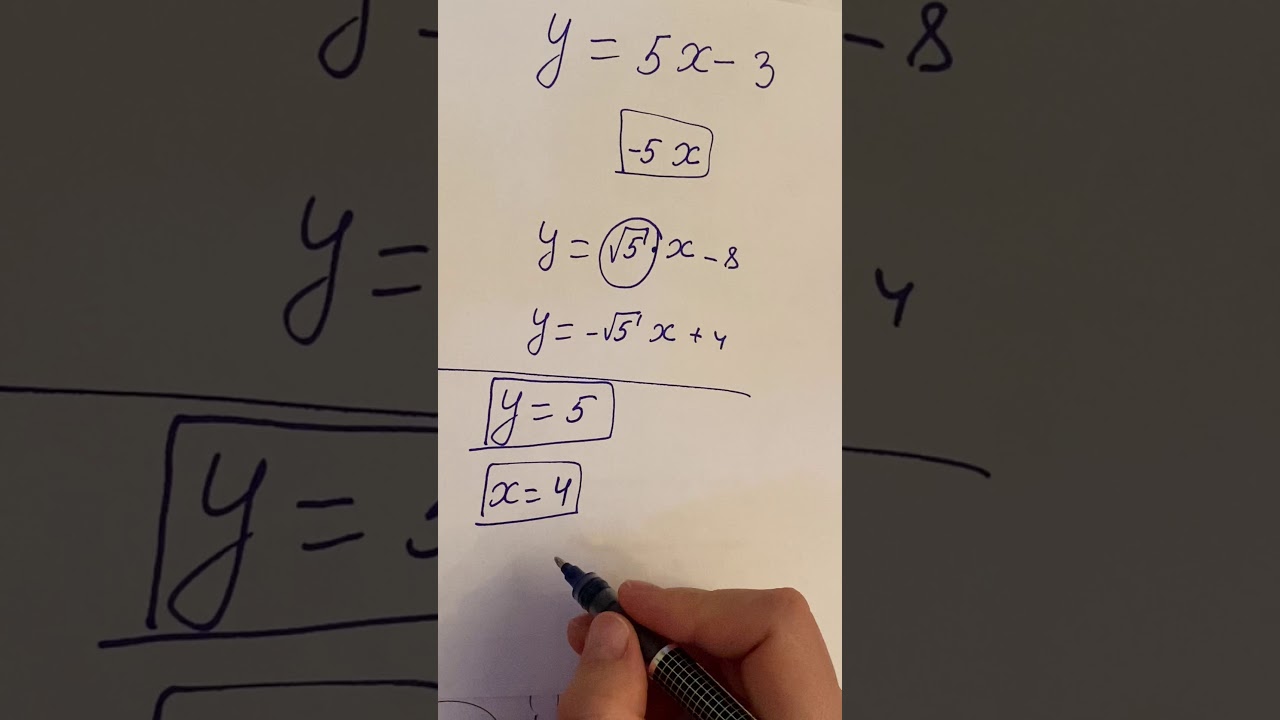 y = 5x - 3
-5x
y = √5 · x - 8
y = -√5 x + 4
y = 5
x = 4